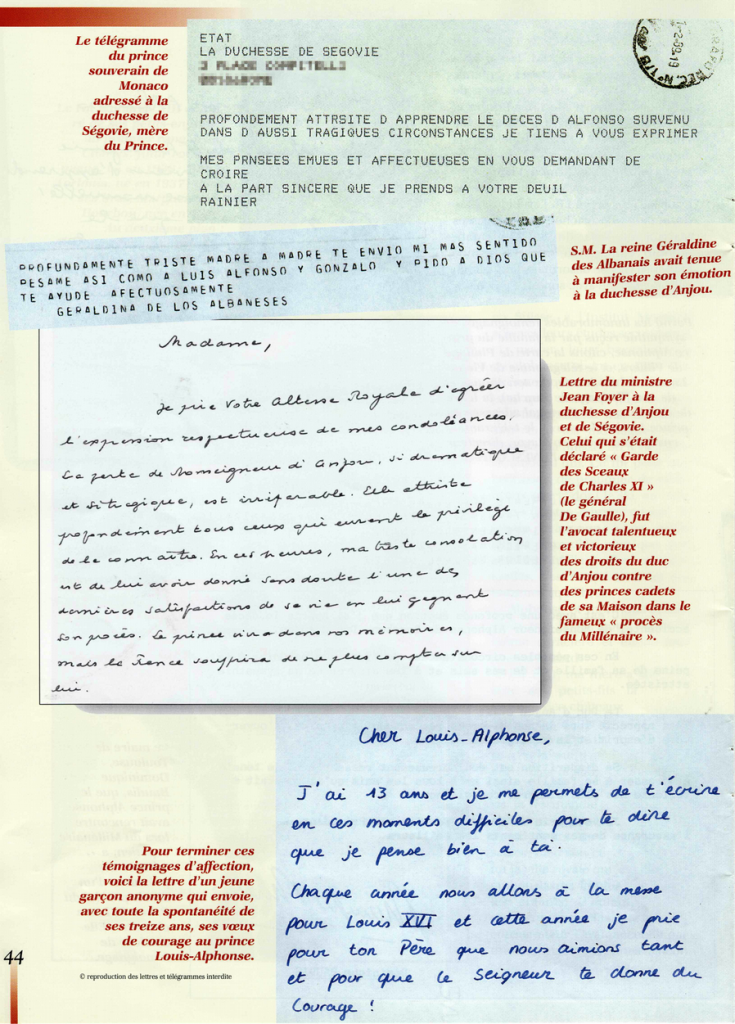 Le télégramme
du prince
souverain de
Monaco
adressé à la
duchesse de
Ségovie, mère
du Prince.
ETAT
LA DUCHESSE DE SEGOVIE
PROFONDEMENT ATTRSITE D APPRENDRE LE DECES D ALFONSO SURVENU
DANS D AUSSI TRAGIQUES CIRCONSTANCES JE TIENS A VOUS EXPRIMER
MES PRNSEES EMUES ET AFFECTUEUSES EN VOUS DEMANDANT DE
CROIRE
A LA PART SINCERE QUE JE PRENDS A VOTRE DEUIL
RAINIER
PROFUNDAMENTE TRISTE MADRE A MADRE TE ENVIO MI MAS SENTIDO
PESAME ASI COMO A LUIS ALFONSO Y GONZALO Y PIDO A DIOS QUE
TE AYUDE AFECTUOSAMENTE
GERALDINA DE LOS ALBANESES
S.M. La reine Géraldine
des Albanais avait tenue
à manifester son émotion
à la duchesse d'Anjou.
Madame,
Je prie Votre Altesse Royale d'agréer
l'expression respectueuse de mes condoléances.
La perte de Monseigneur d'Anjou, si dramatique
et si tragique, est irréparable. Elle attriste
profondément tous ceux qui eurent le privilège
de le connaître. En ces heures, ma triste consolation
est de lui avoir donné sans doute l'une des
dernières satisfactions de sa vie en lui gagnant
son procès. Le prince vivra dans nos mémoires,
mais la France souffrira de ne plus compter sur
lui.
Lettre du ministre
Jean Foyer à la
duchesse d'Anjou
et de Ségovie.
Celui qui s'était
déclaré « Garde
des Sceaux
de Charles XI »
(le général
De Gaulle), fut
l'avocat talentueux
et victorieux
des droits du duc
d'Anjou contre
des princes cadets
de sa Maison dans le
fameux « procès
du Millénaire ».
Cher Louis-Alphonse,
J'ai 13 ans et je me permets de t'écrire
en ces moments difficiles pour te dire
que je pense bien à toi.
Chaque année nous allons à la messe
pour Louis XVI et cette année je prie
pour ton Père que nous aimions tant
et pour que le Seigneur te donne du
Courage !
Pour terminer ces
témoignages d'affection,
voici la lettre d'un jeune
garçon anonyme qui envoie,
avec toute la spontanéité de
ses treize ans, ses vœux
de courage au prince
Louis-Alphonse.
44
© reproduction des lettres et télégrammes interdite